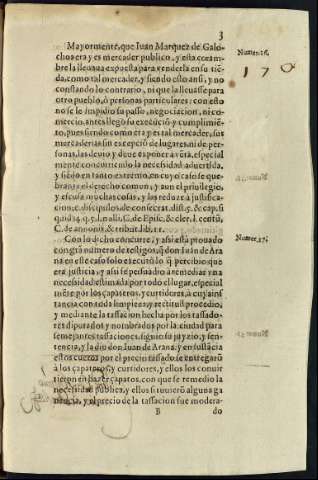 3
Mayormente, que Iuan Marquez de Galo-
chos era y es mercader publico, y esta corambre
la lleuaua expuesta para venderla en su tiẽ-
da, como tal mercader, y siendo esto ansi, y no
constando lo contrario, ni que la lleuasse para
otro pueblo, ò personas particulares: con esto
no se impidio su passo, negociacion, ni co-
mercio, antes llegò su execuciõ y cumplimiẽ-
to, pues siendo como era y es tal mercader, sus
mercaderias sin excepciõ de lugares, ni de per-
sonas, las deuio y deue exponer a vẽta, especial
mente concurriendo la necessidad aduertida,
y siẽdo en tanto extremo, en cuyo caso se que-
branta el derecho comun, y aun el priuilegio,
y escusa muchas cosas, y las reduze a justifica-
cion, c. discipulos, de consecrat. dist. 5. & cap. si
C. de annonis, & tribut. lib. 11.
Con lo dicho concurre, y assi està prouado
con grã numero de testigos, q̃ don Iuan de Ara
na en este caso solo executò lo q̃ percibio que
era justicia, y assi se persuadio a remediar vna
necessidad estimada por todo el lugar, especial
mẽte por los çapateros, y curtidores, à cuya ins-
tancia con toda limpieza, y rectitud procedio,
y mediante la tassacion hecha por los tassado-
res diputados y nombrados por la ciudad para
semejantes tassaciones, siguio su juyzio, y sen-
tencia, y la dio don Iuan de Arana, y en justicia
estos cueros por el precio tassado se entregarõ
à los çapateros, y curtidores, y ellos los conuir
tieron en hazer çapatos, con que se remedio la
necessidad publica, y ellos si tuuierõ alguna ga
nancia, y el precio de la tassacion fue modera-
B do
Numer. 16.
170
Numer. 17.